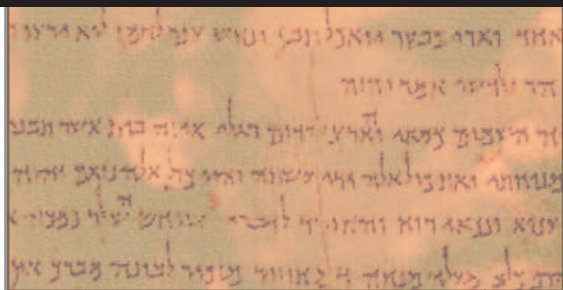 אחד וארי כבקר יואכל תבן ונחש עפר לחמו לוא ירעו
הר קודשי אמר יהוה
השמים כסאי והארץ הדום רגלי אי זה בית אשר תבנו
מנוחתי ואת כול אלה ידי עשתה והיו כול אלה נואם יהוה
ונכאי רוח והחורד לדברי שוחט השור כמכה
כלב מעלי מנחה דם חזיר מזכיר לבונה מברך און